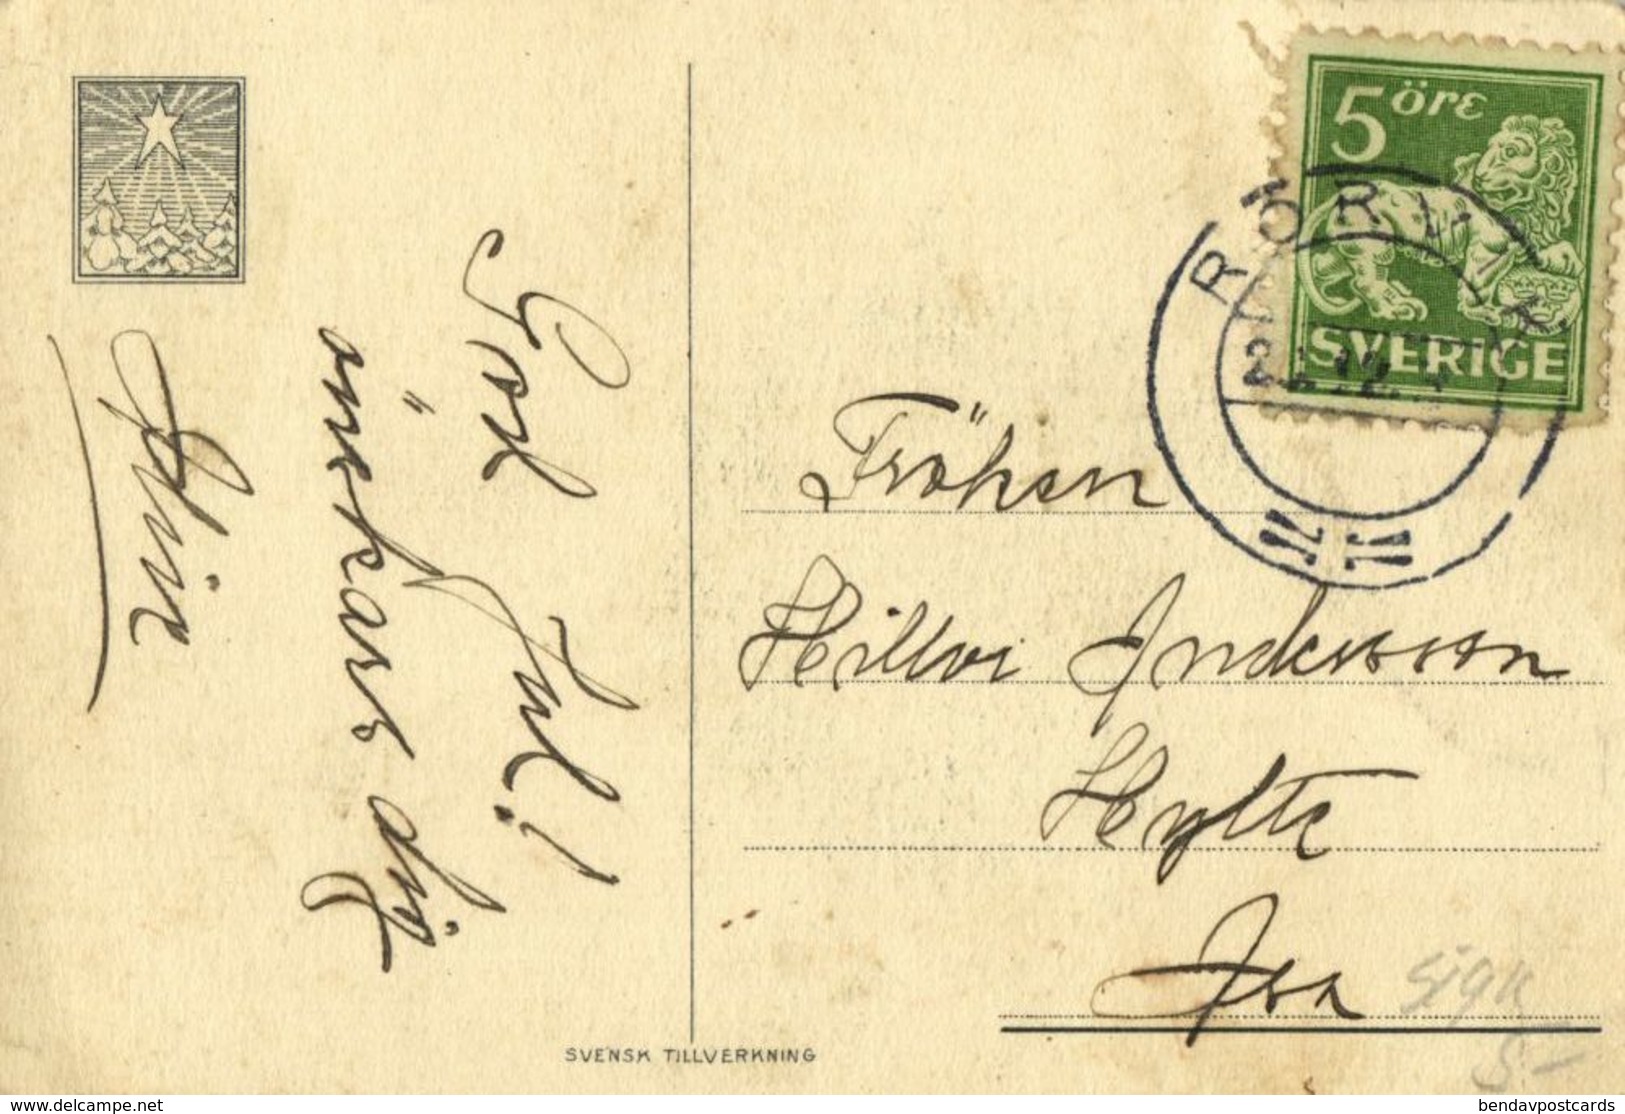 God Jul!
önskas dig
Elvir
5 öre
SVERIGE
RÖRVIK
Fröken
Hillvi Andersson
Hylte
Asa
sign
5-
SVENSK TILLVERKNING
www.delcampe.net
bendavpostcards